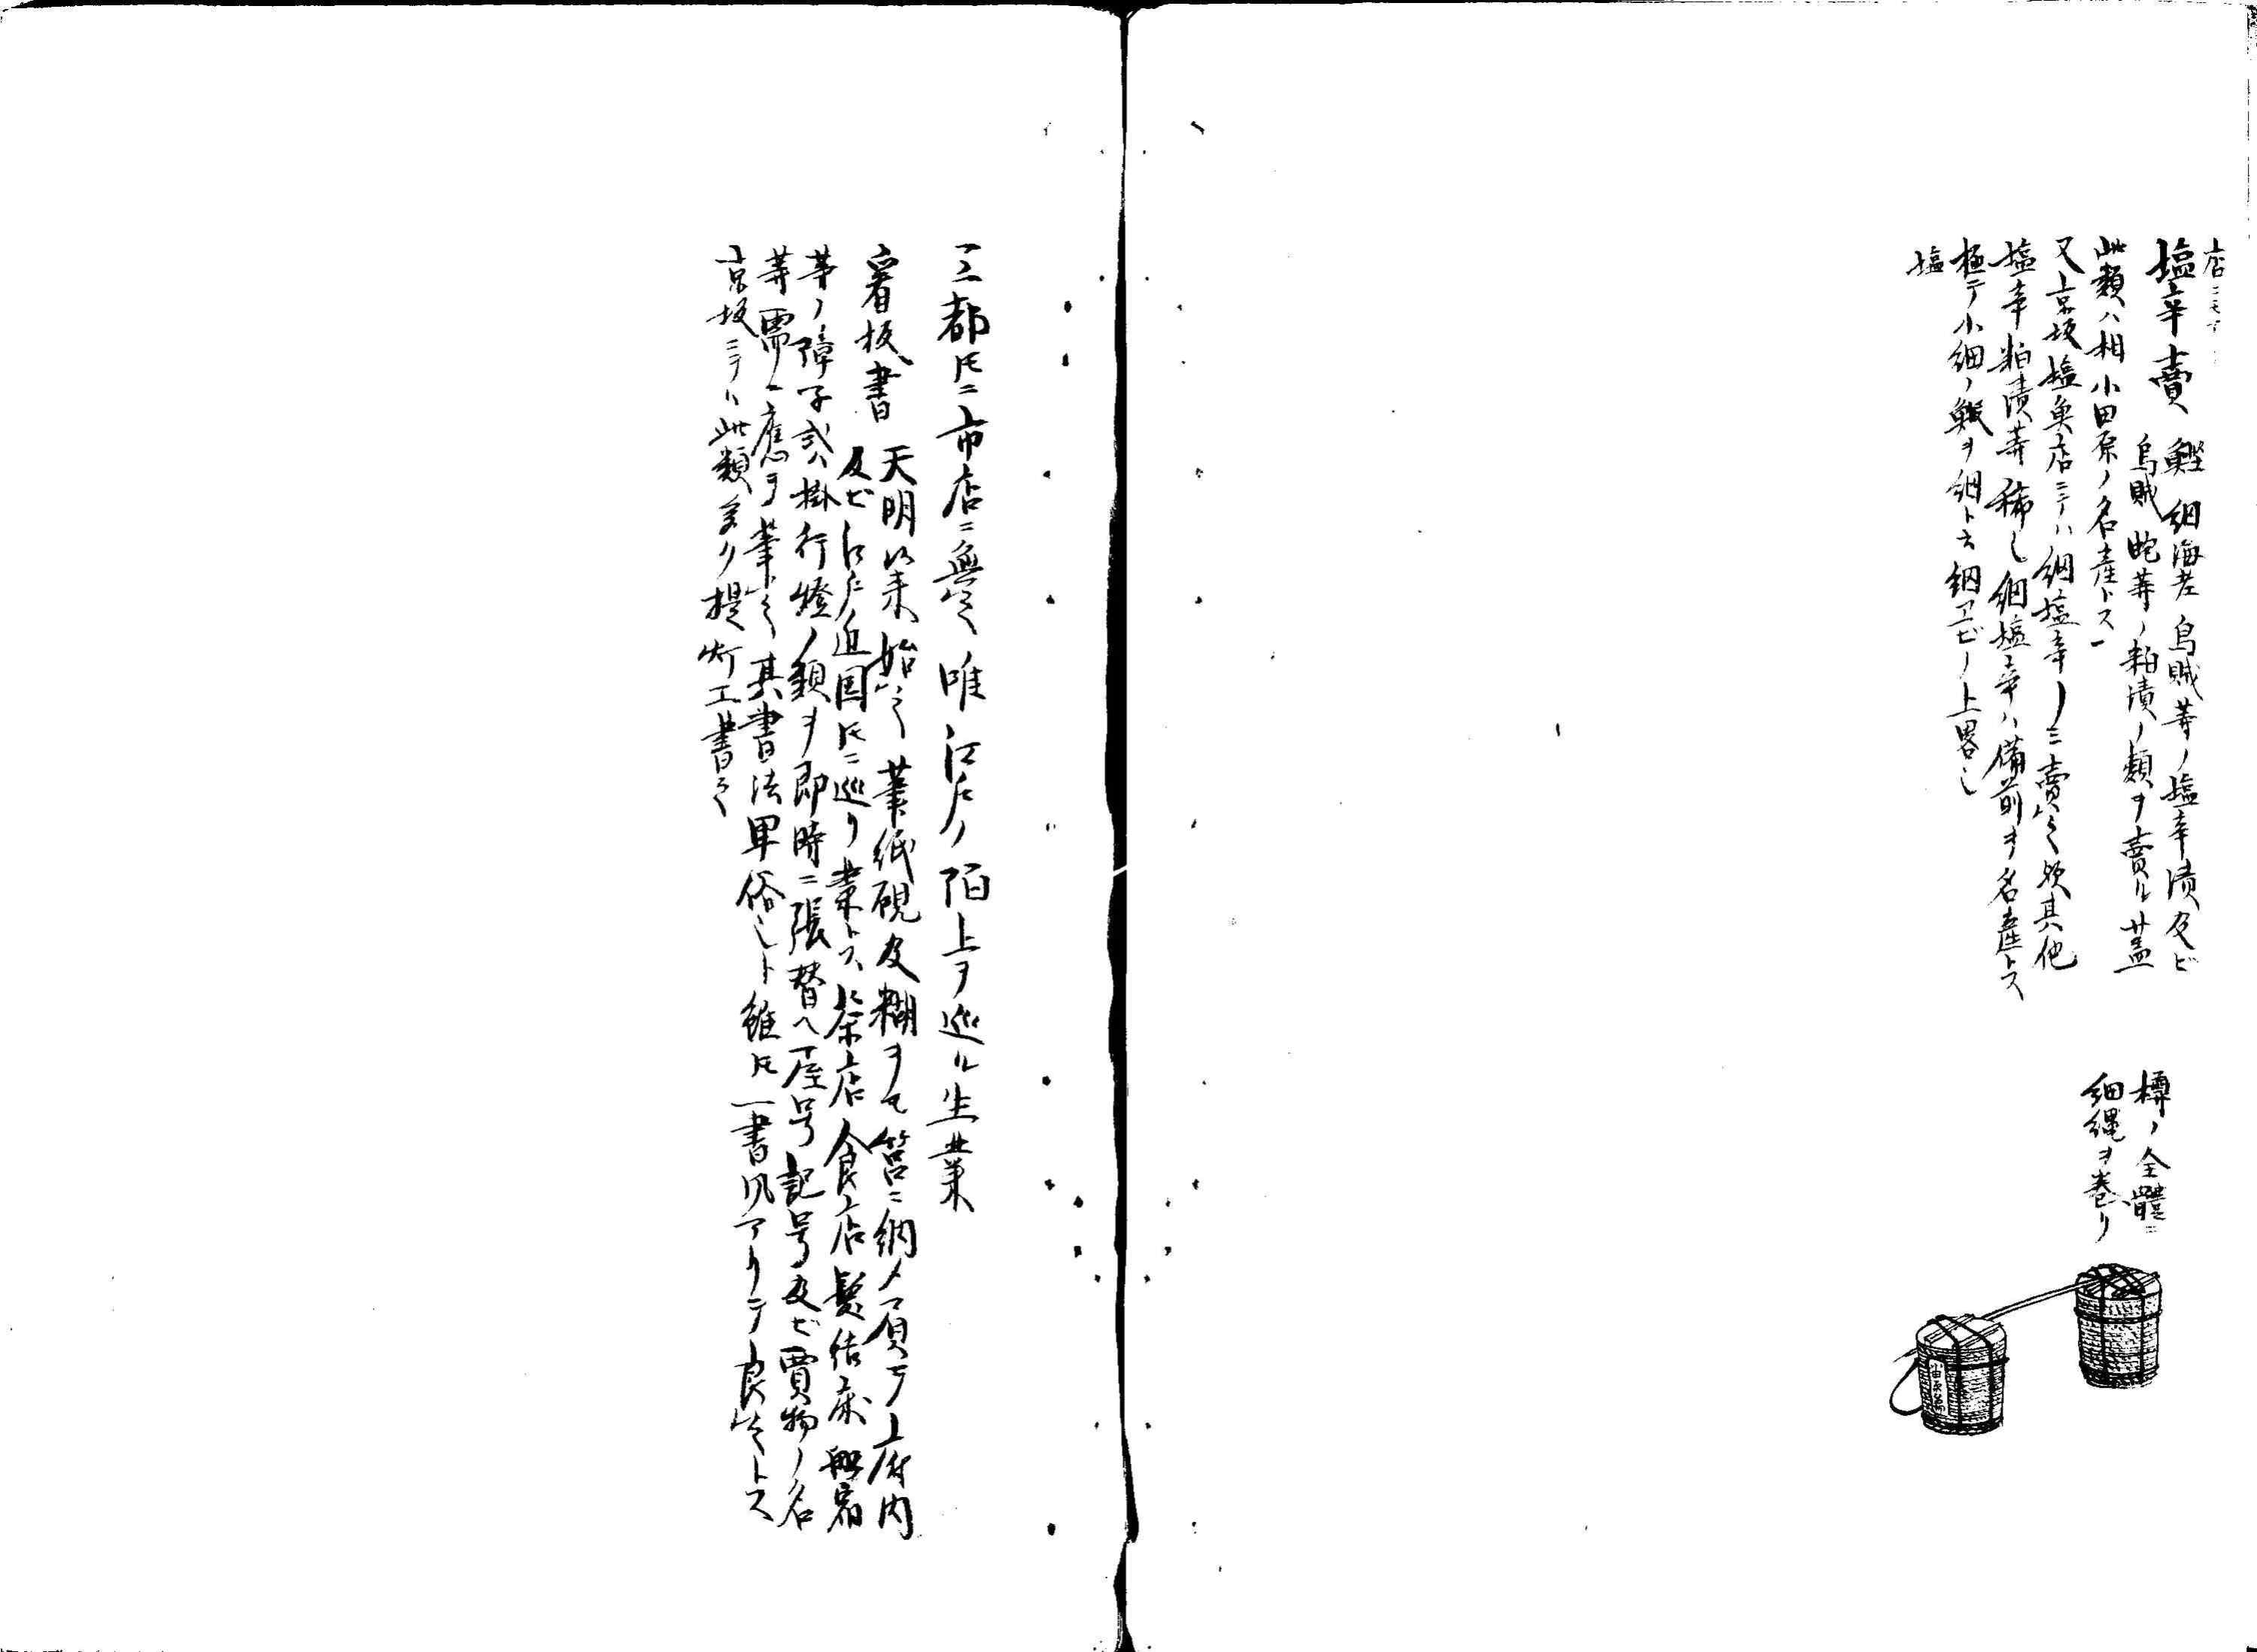 塩辛賣 鰹 䋄海老 烏賊等ノ塩辛漬及ビ
烏賊 鮑等ノ粕漬ノ類ヲ賣ル 蓋
此類ハ相小田原ノ名産トス
又京坂塩魚店ニテハ䋄塩辛ノミ賣之欤其他
塩辛粕漬等稀也䋄塩辛ハ備前ヲ名産トス
極テ小細ノ鰕ヲ䋄ト云䋄エビノ上畧也
塩
樽ノ全體ニ
細縄ヲ巻リ
三都トモニ市店ニ無之唯江戸ノ陌上ヲ巡ル生業
看板書 天明以来始之筆紙硯及糊ヲモ筥ニ納メ負テ上府内
及ビ江戸近国トモニ巡リ業トス 茶店食店髪結床舩宿
等ノ障子或ハ掛行燈ノ類ヲ即時ニ張替ヘ屋号記号及ビ賣物ノ名
等需ニ應ヲ筆之其書法卑俗也ト雖トモ一書風アリテ良之トス
京坂ニテハ此類多ク提灯工書之